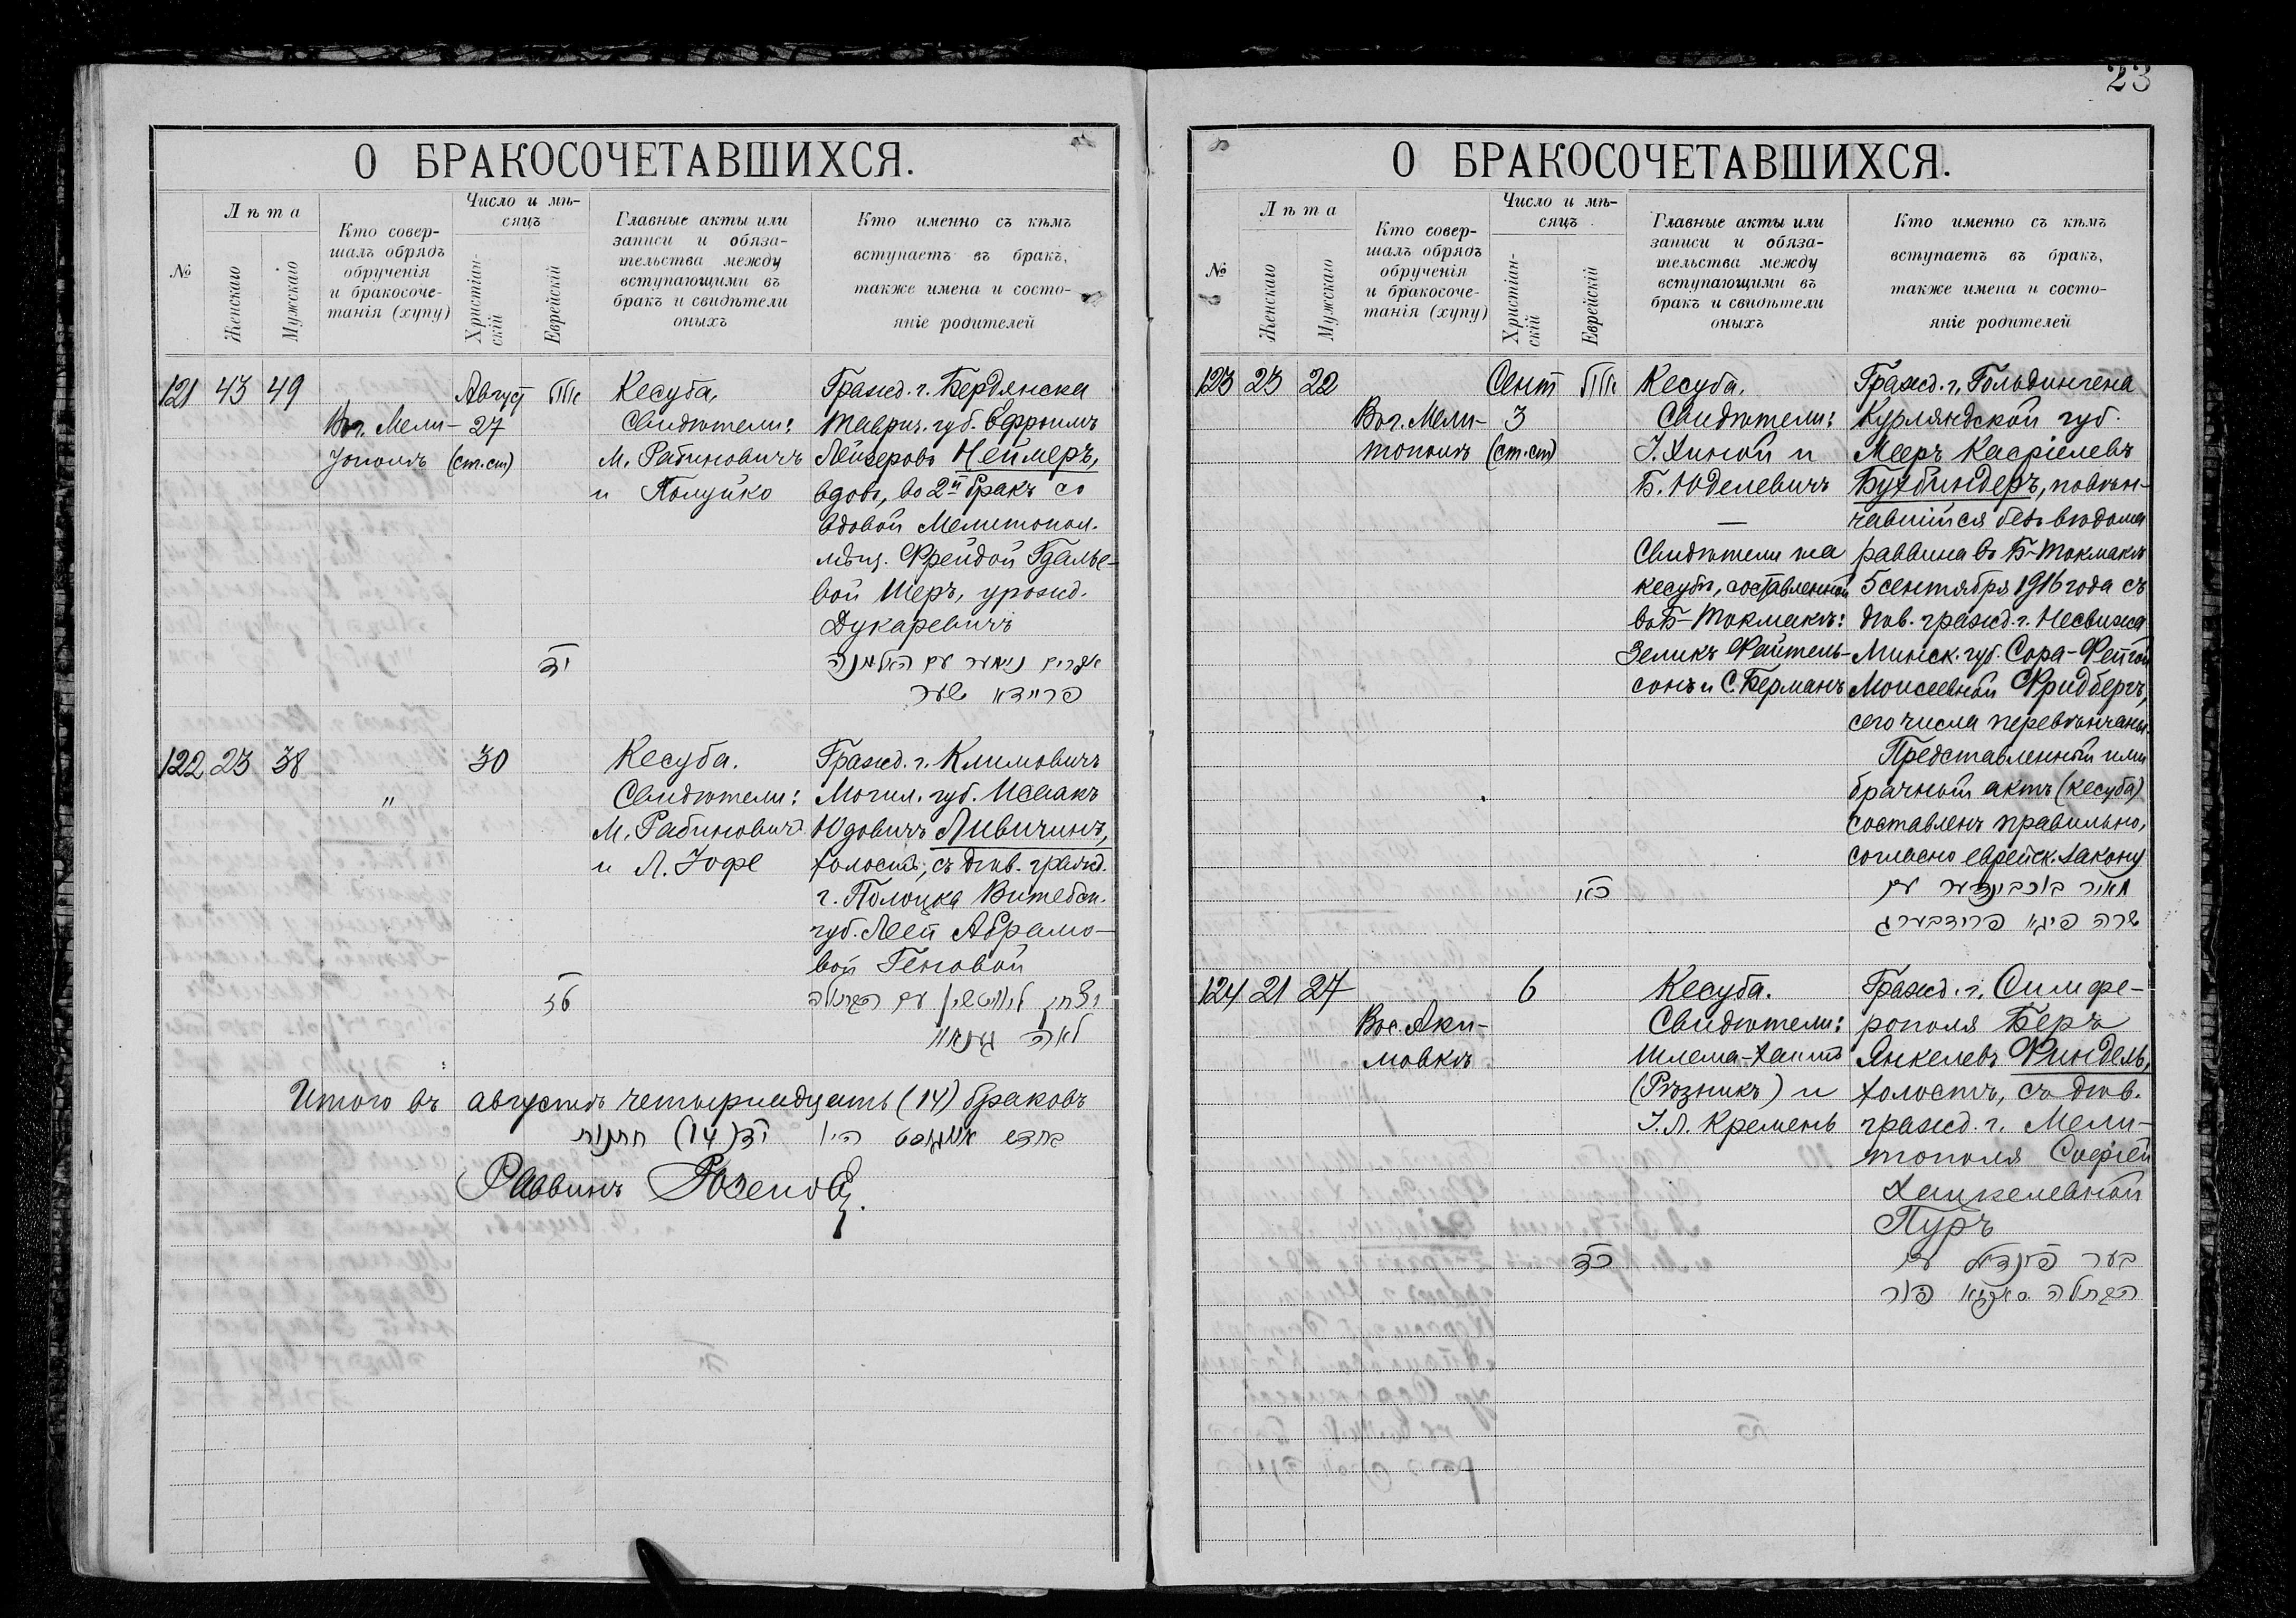 23
О БРАКОСОЧЕТАВШИХСЯ.
№
Лѣта
Женскаго
Мужскаго
Кто совер-
шалъ обрядъ
обрученія
и бракосоче-
танія (хупу)
Число и мѣ-
сяцъ
Христіан-
скій
Еврейскій
Главные акты или
записи и обяза-
тельства между
вступающими въ
бракъ и свидѣтели
оныхъ
Кто именно съ кѣмъ
вступаетъ въ бракъ,
также имена и состо-
яніе родителей
121 43 49
Въ г. Мели-
тополѣ
Август
27
(ст. ст)
יד
Кесуба.
Свидѣтели:
М. Рабиновичъ
и Полуйко
Гражд. г. Бердянска
Таврич. губ. Ефроимъ
Лейзеровъ Неймеръ,
вдов., во 2й бракъ со
вдовой Мелитопол.
мѣщ. Фрейдой Гдалье-
вой Шеръ, урожд.
Дукаревичъ
אפרים ניימער עם האלמנה
פריידא שער
122 23 38
"
30
Кесуба.
Свидѣтели:
М. Рабиновичъ
и Л. Іофе
Гражд. г. Климовичъ
Могил. губ. Исаакъ
Юдовичъ Ливичинъ,
холостъ, съ дѣв. гражд.
г. Полоцка Витебск.
губ. Леей Абрамо-
вой Геновой
יצחק ליוויטשין עם הבתולה
לאה
Итого въ августѣ четырнадцать (14) браковъ
בחדש אויגוסט היו יד (14) חתונות
Раввинъ
О БРАКОСОЧЕТАВШИХСЯ.
№
Лѣта
Женскаго
Мужскаго
Кто совер-
шалъ обрядъ
обрученія
и бракосоче-
танія (хупу)
Число и мѣ-
сяцъ
Христіан-
скій
Еврейскій
Главные акты или
записи и обяза-
тельства между
вступающими въ
бракъ и свидѣтели
оныхъ
Кто именно съ кѣмъ
вступаетъ въ бракъ,
также имена и состо-
яніе родителей
123 23 22
Въ г. Мели-
тополѣ
Сент
3
(ст. ст)
Кесуба.
Свидѣтели:
І. Хиной и
Б. Юделевичъ
—
Свидѣтели на
кесубѣ, составленной
въ Б-Токмакѣ:
Зеликъ Файтель-
сонъ и С. Берманъ
Гражд. г. Гольдингена
Курляндской губ.
Мееръ Касріелевъ
Бухбиндеръ, повѣн-
чавшійся безъ вѣдома
раввина въ Б-Токмакѣ
5 сентября 1916 года съ
дѣв. гражд. г. Несвижа
Минск. губ. Сора-Фейгой
Моисеевной Фридбергъ,
сего числа перевѣнчаны.
Представленный ими
брачный актъ (кесуба)
составленъ правильно,
согласно еврейск. закону
מאיר בוכבינדער עם
שרה פייגא פרידבערג
124 21 27
Въ с. Аки-
мовкѣ
6
כד
Кесуба.
Свидѣтели:
Шлема-Хаимъ
(Рѣзникъ) и
І. Л. Кремень
Гражд. г. Симфе-
рополя Беръ
Янкелевъ Финдель,
холостъ, съ дѣв.
гражд. г. Мели-
тополя Софіей
Хацкелевной
Пуръ
בער פינדיל עם
הבתולה סאפיא פור